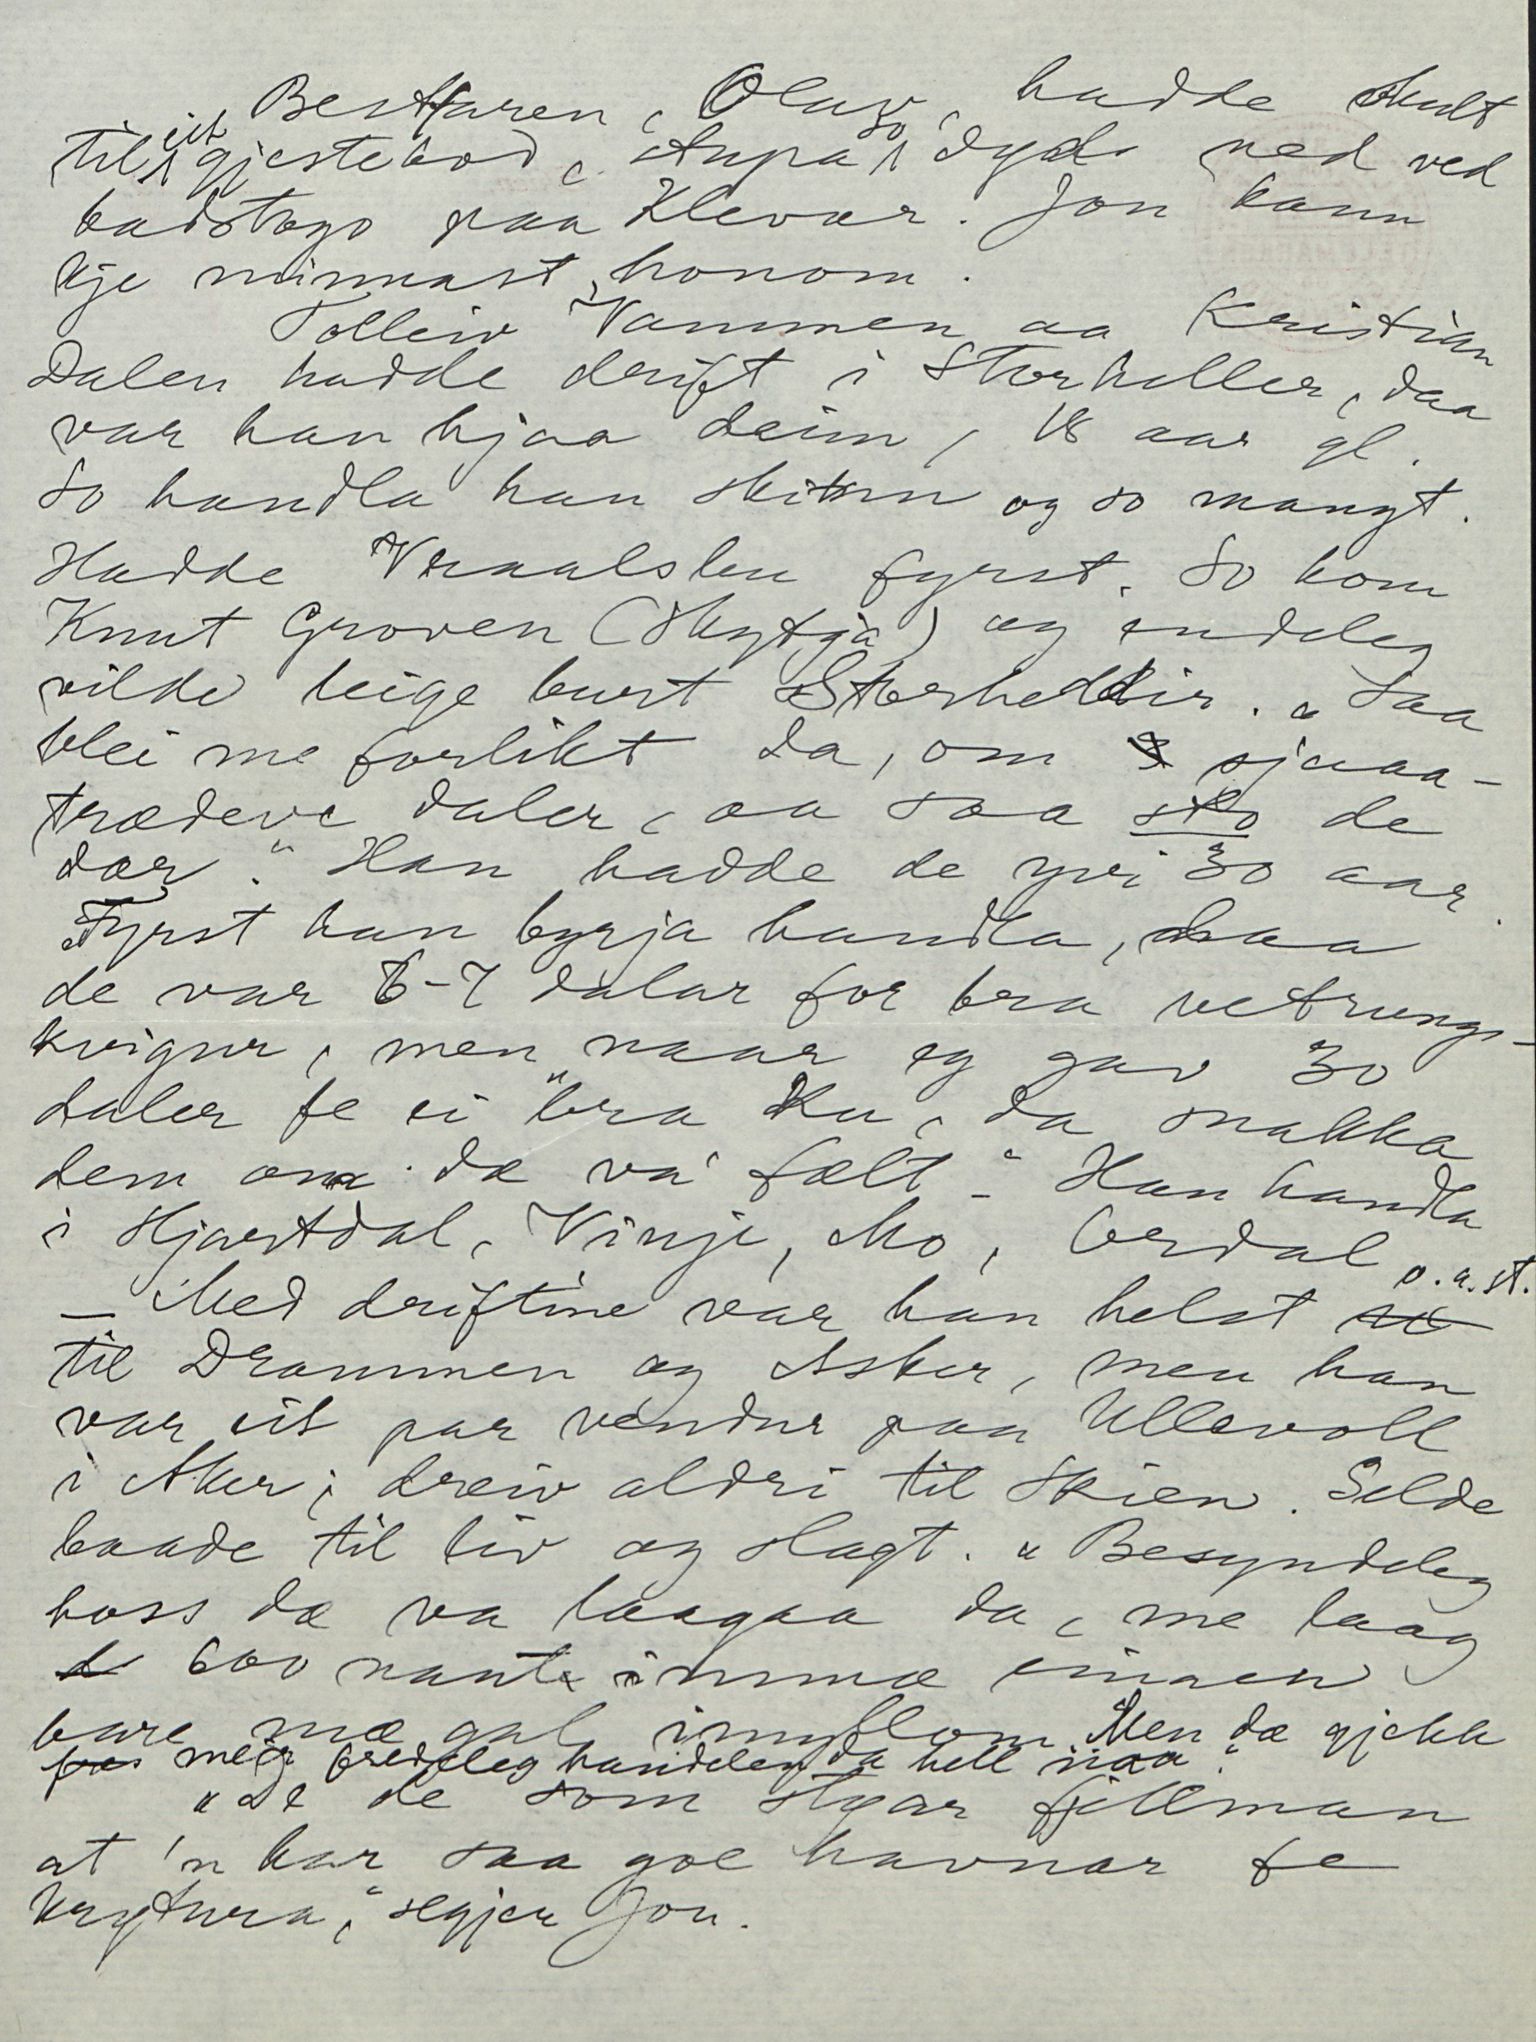 Bestfaren, Olav, hadde skult
til eit gjestebod, staypa so dyd ned ved
badstogo paa Klevar. Jon kann
kje minnast honom.
Tolleiv Vammen aa Kristian
Dalen hadde drift i Storheller, daa
var han hjaa deim, 18 aar gl.
So handla han skinn og so mangt.
Hadde Vraalsbu fyrst. So kom
Knut Groven (Skytja) og endeleg
vilde leige burt Storhellir. "Saa
blei me forlikt da, om sjuaa-
trædeve daler, aa saa sto de
dær." Han hadde de yvi 30 aar.
"Fyrst han byrja handla, daa
de var 6-7 dalar for bra vetrungs-
kvigur, men naar eg gav 30
daler fe ei bra Ku, da snakka
dem om dæ va' fælt." Han handla
i Hjartdal, Vinje, Mo, Ordal o.a.st.
– Med driftine var han helst
til Drammen og Asker, men han
var eit par vendur paa Ullevoll
i Aker; dreiv aldri til Skien. Selde
baade til liv og slagt. "Besyndeleg
hoss dæ va laagaa da, me laag
600 naut imma einaen
bare mæ gal imyllom. Men dæ gjekk
meg fredeleg handelen da hell naa."
"De de som styar fjellman
at 'n har saa goe havnar fe
krytura," segjer Jon.